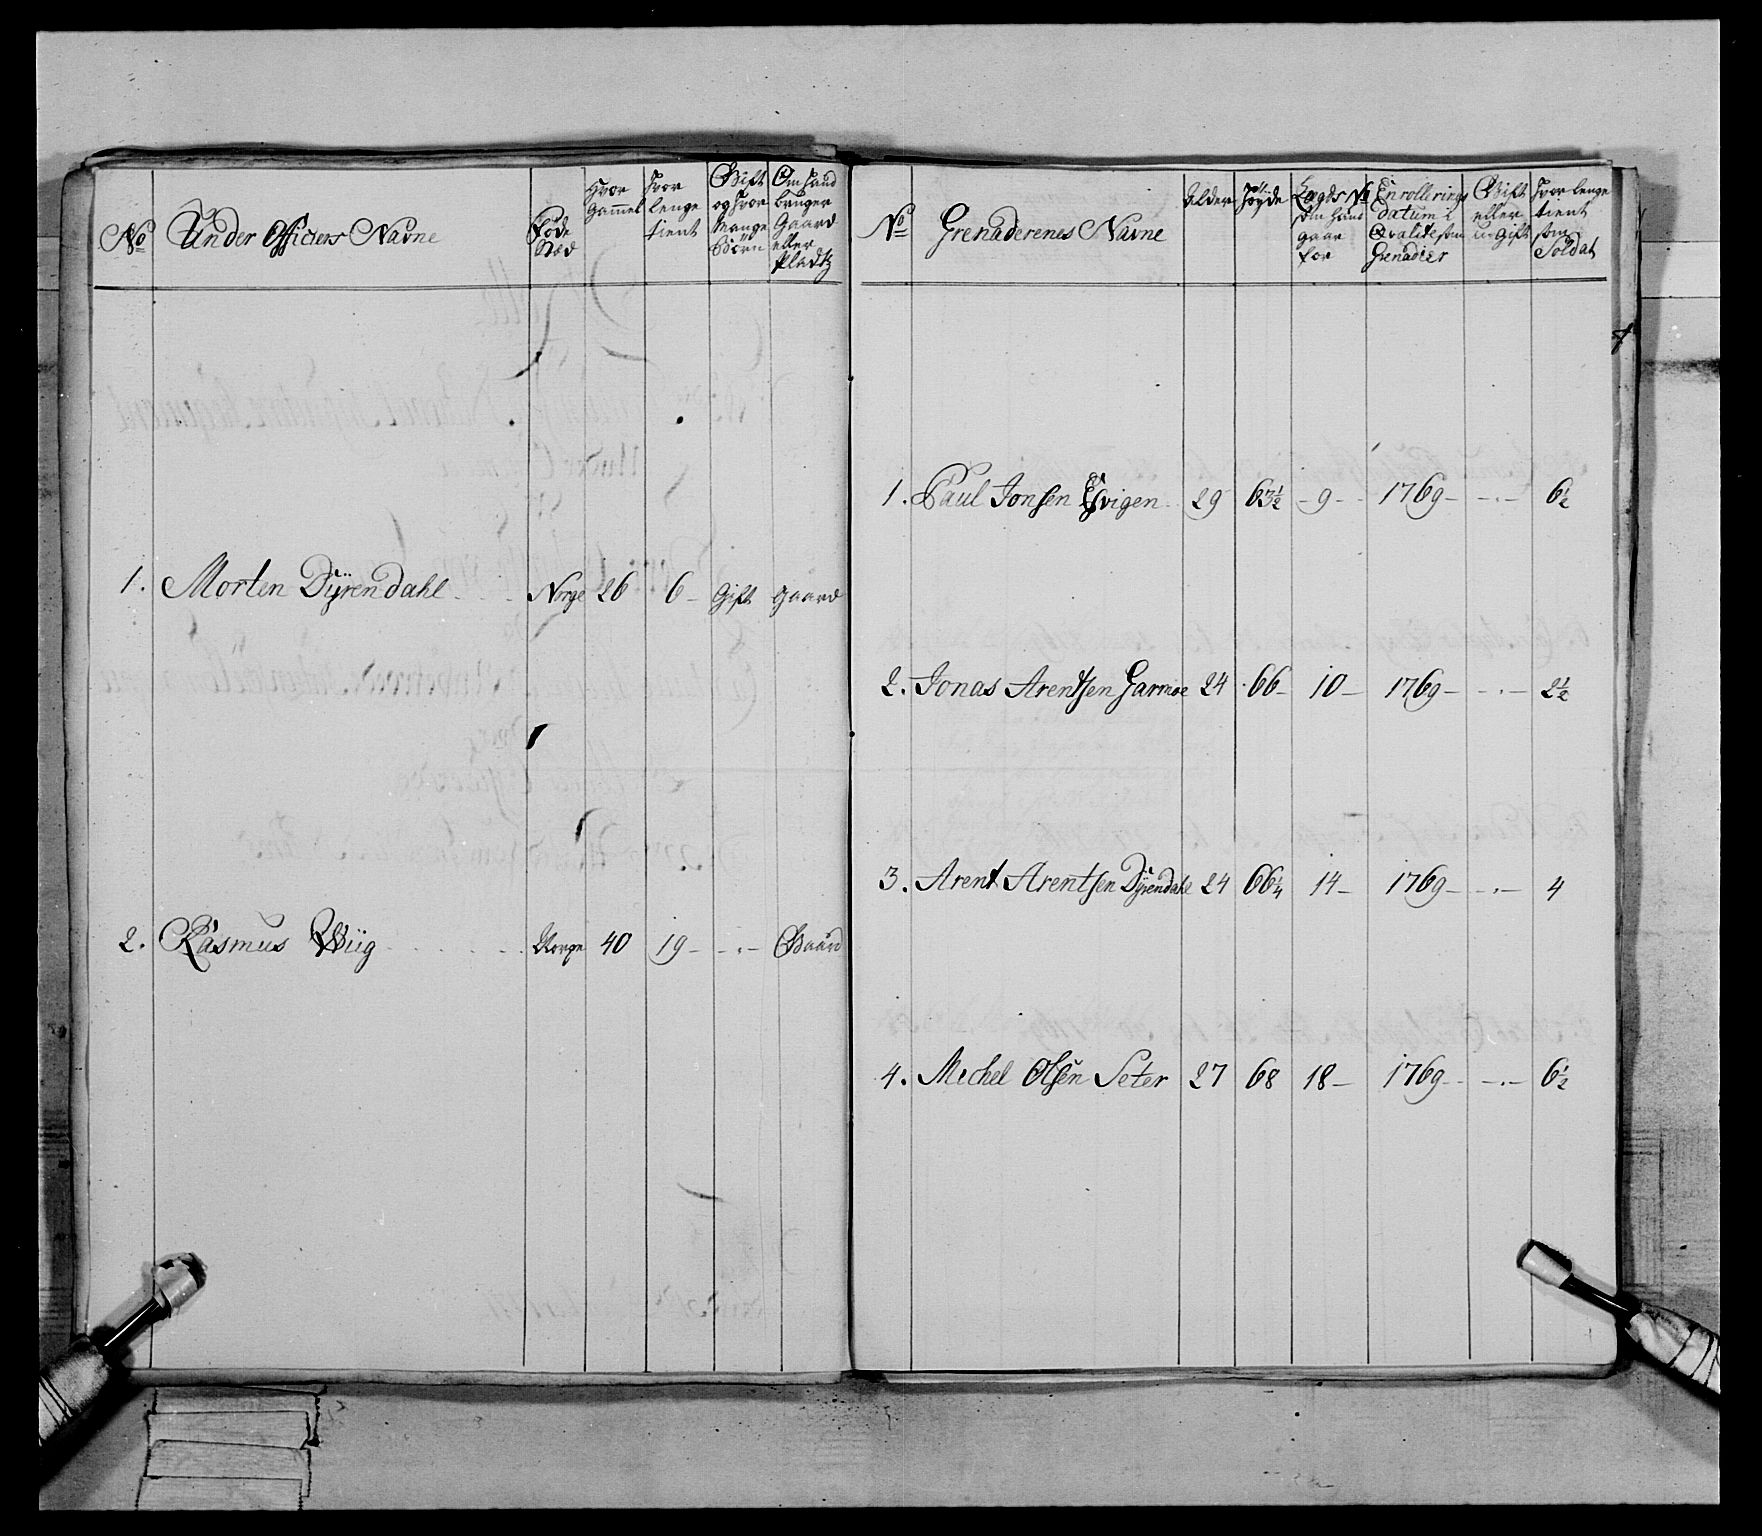 No
Under Officiers Navne
Føde
Stød
Hvor
Gammel
Hvor
lenge
tient
Gift
og Hvor
Mange
Børn
Om Hand
bruger
Gaard
eller
Pladtz
1. Morten Dÿrendahl Norge 26 6 Gift Gaard
2. Rasmus Wiig Norge 40 19 Gaard
No
Grenaderenes Navne
Alder
Høyde
Lægds No
Om Hand
gaar
for
Enrollerings
datum i
Qvalite som
Grenadier
Gift
eller
u-Gift
Hvor lenge
tient
som
Soldat
1. Paul Jonsen Evigen 29 63½ 9 1769 6½
2. Jonas Arentsen Garmoe 24 66 10 1769 2½
3. Arent Arentsen Dÿrendahl 24 66¼ 14 1769 4
4. Michel Olsen Seter 27 68 18 1769 6½